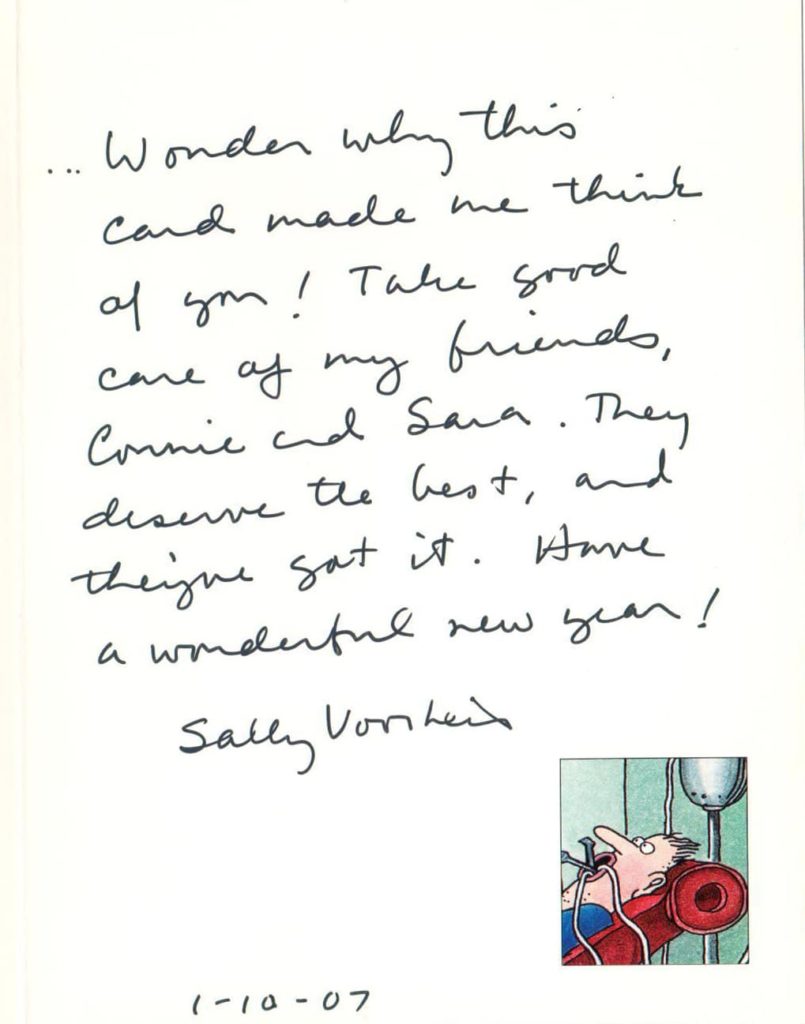 ... Wonder why this
card made me think
of you! Take good
care of my friends,
Connie and Sara. They
deserve the best, and
they've got it. Have
a wonderful new year!
Sally
1-10-07